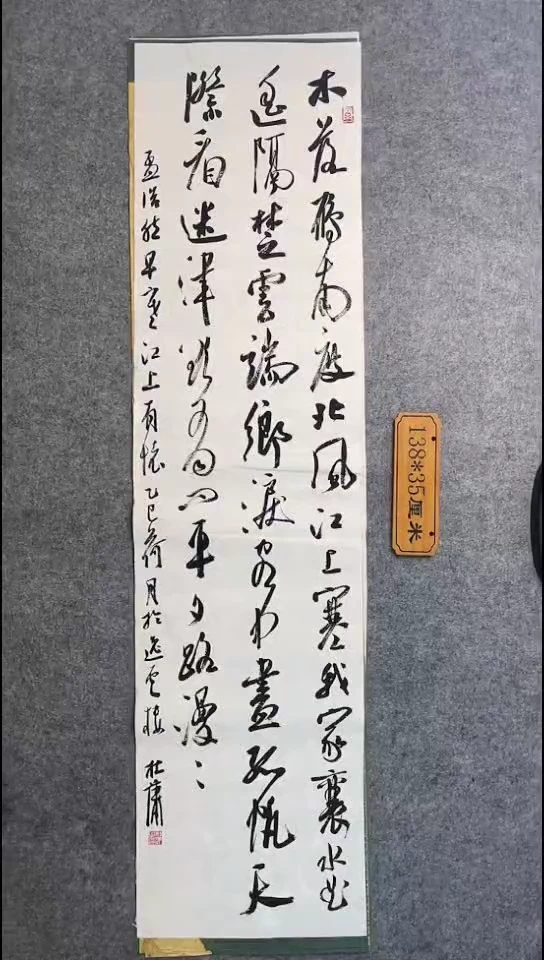 木落鴈南度北風江上寒我家襄水曲
遥隔楚雲端鄉淚客中盡孤帆天
際看迷津欲有问平夕路漫〻
孟浩然早寒江上有懷乙巳荷月於逸雲樓杜
138*35厘米